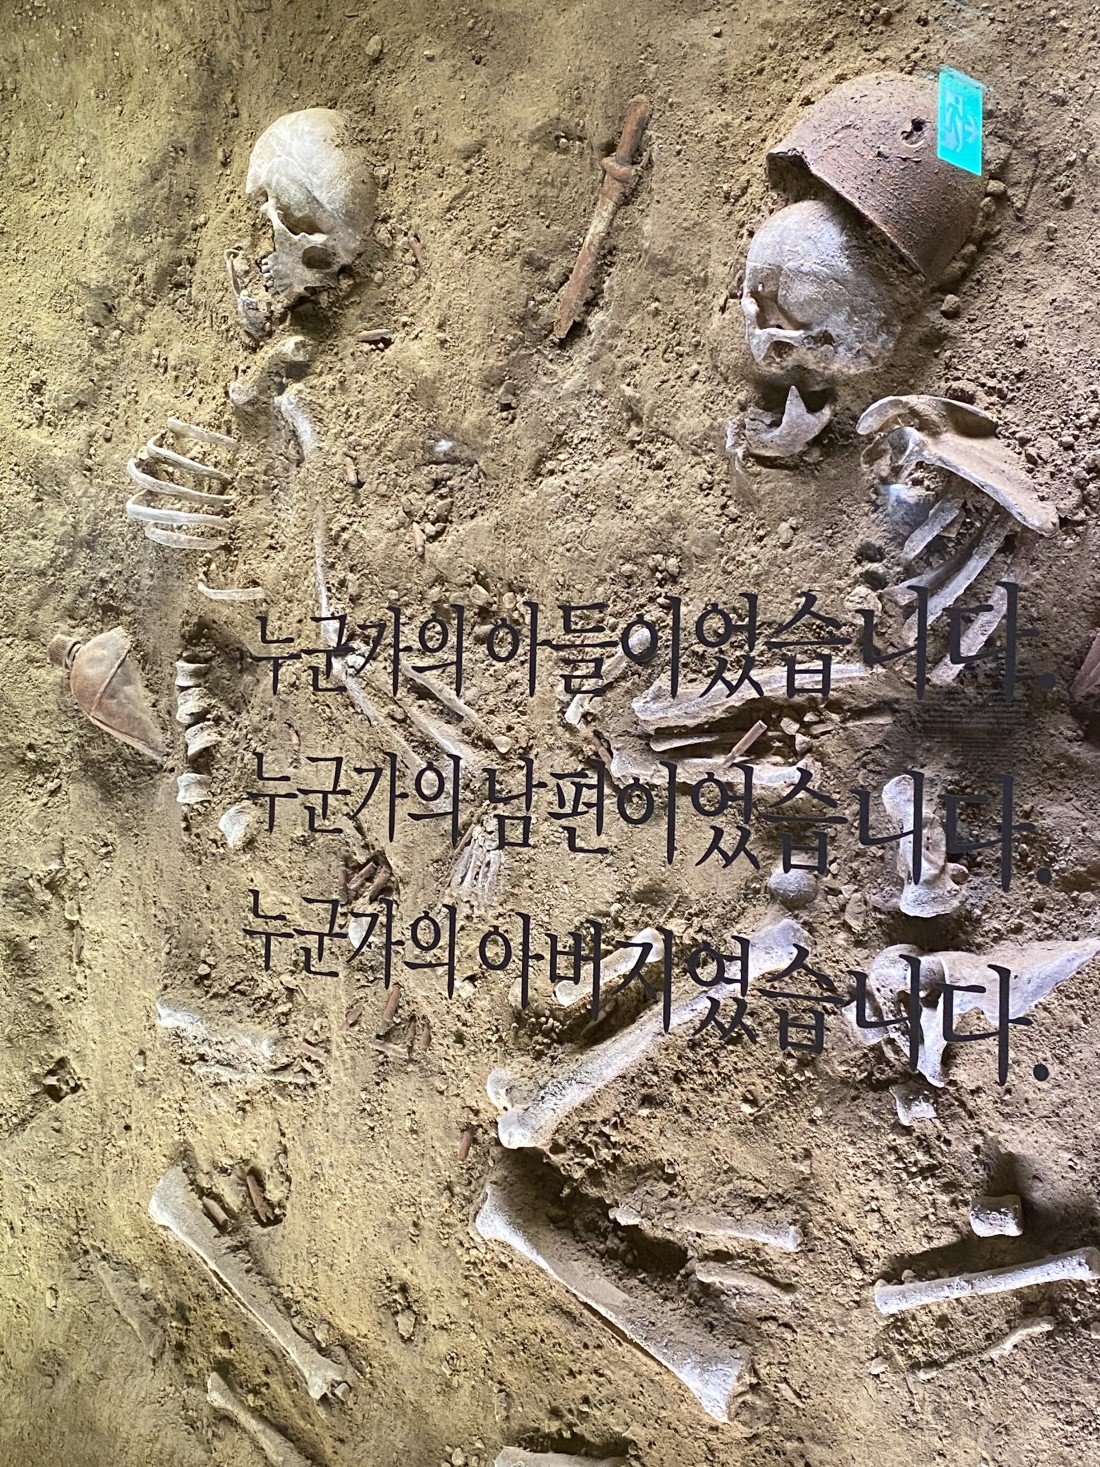 누군가의 아들이었습니다.
누군가의 남편이었습니다.
누군가의 아버지였습니다.